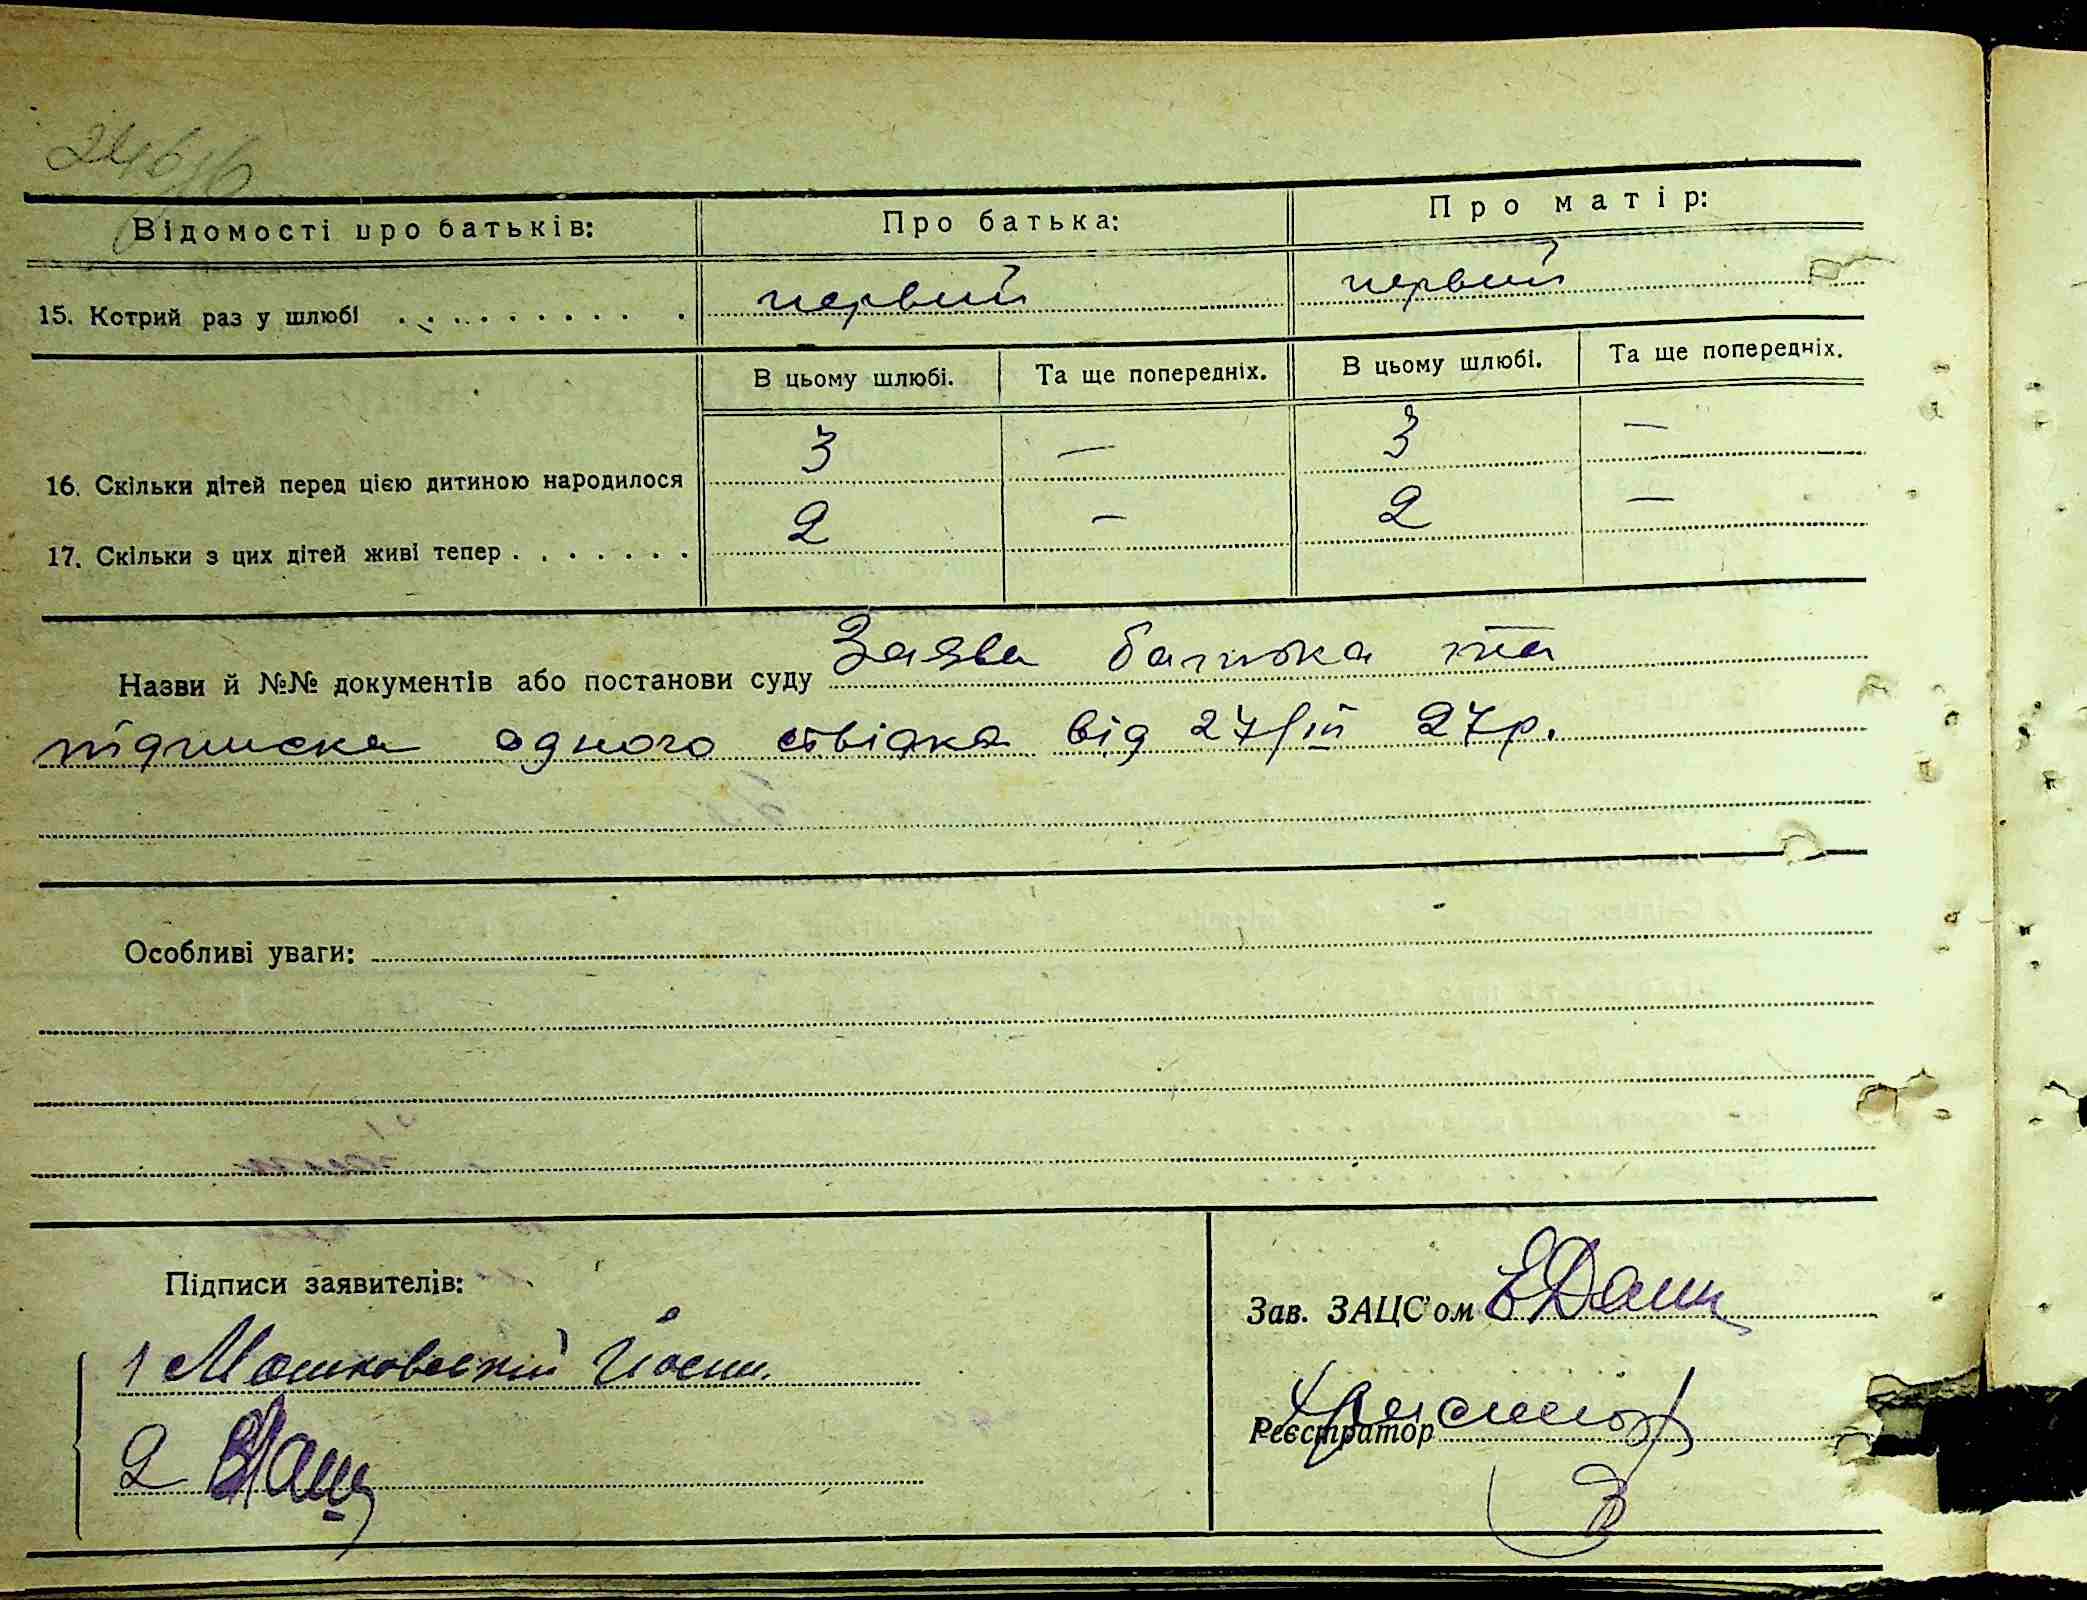 Відомості про батьків: Про батька: Про матір:
15. Котрий раз у шлюбі . . . . . . . . . . первий первий
В цьому шлюбі. Та ще попередніх. В цьому шлюбі. Та ще попередніх.
16. Скільки дітей перед цією дитиною народилося 3 — 3 —
17. Скільки з цих дітей живі тепер . . . . . . . 2 — 2 —
Назви й №№ документів або постанови суду Заява батька та
підписка одного свідка від 27/III 27р.
Особливі уваги:
Підписи заявителів:
Зав. ЗАЦС'ом
1 Мошковський Йосип.
Реєстратор
2